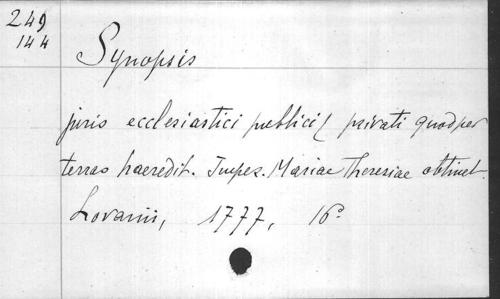 249
144
Synopsis
juris ecclesiastici publici & privati quod per
terras haeredit. Imper. Mariae Theresiae obtinet.
Lovanii, 1777, 16°